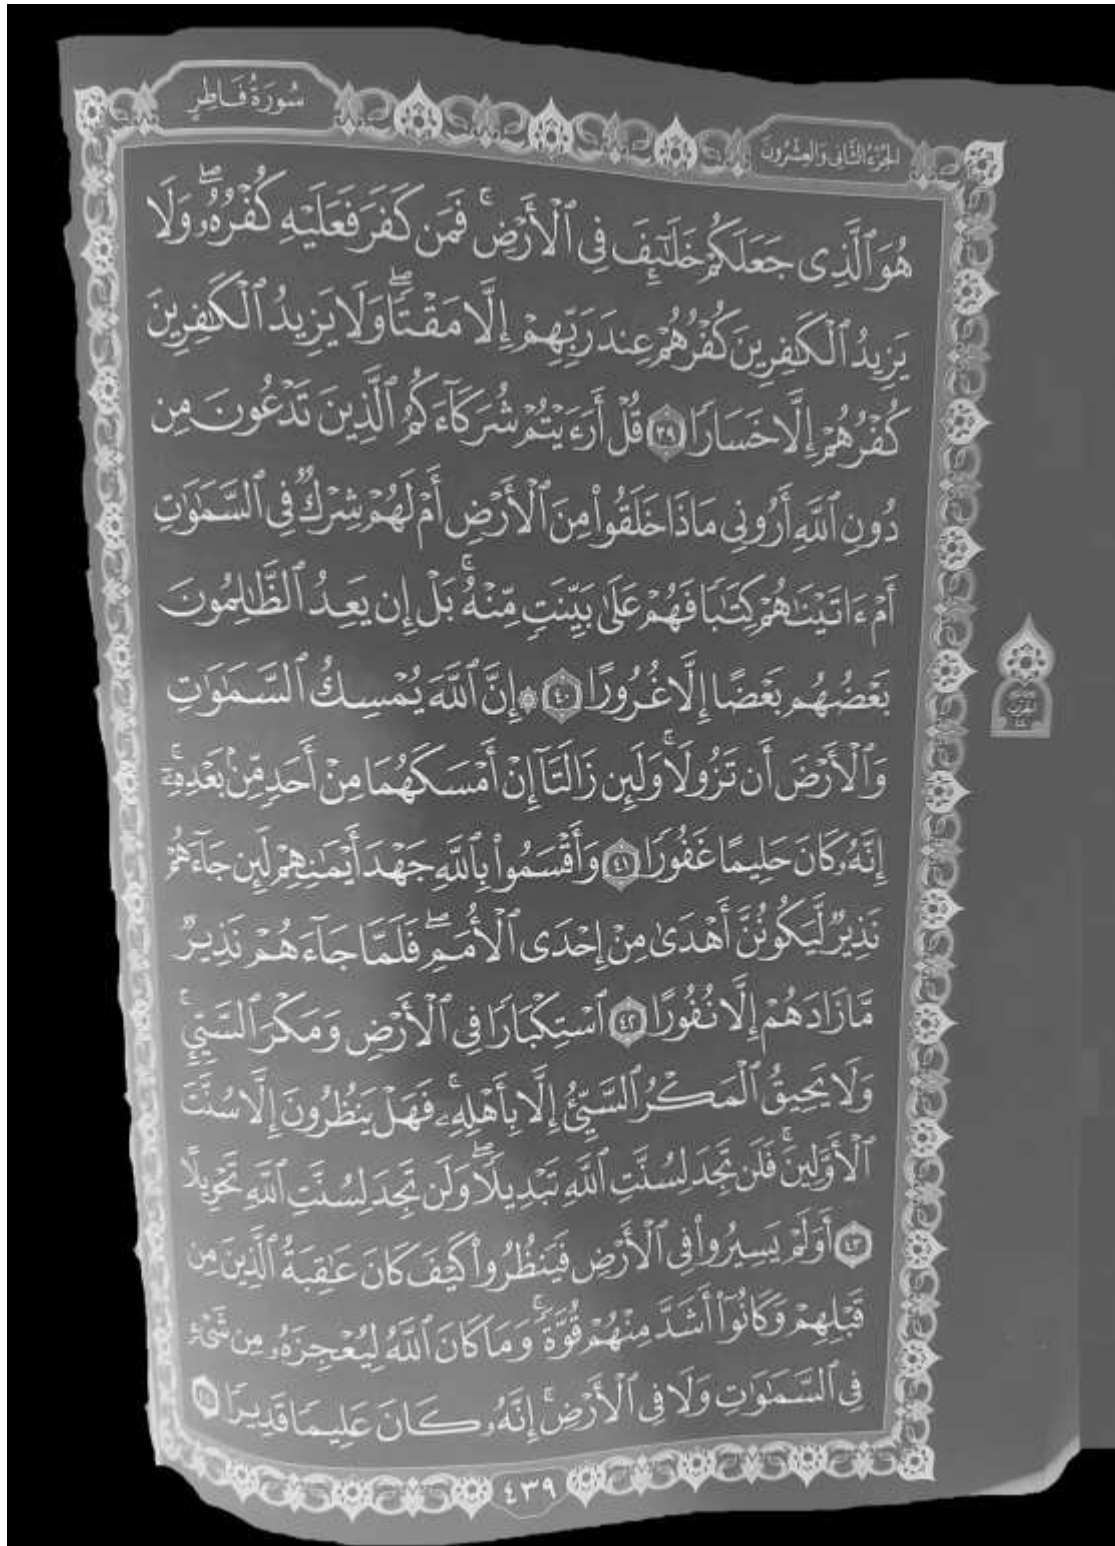 سُورَةُ فَاطِرٍ
الجُزْءُ الثَّانِي وَالعِشْرُونَ
هُوَ ٱلَّذِى جَعَلَكُمْ خَلَٰٓئِفَ فِى ٱلْأَرْضِ ۚ فَمَن كَفَرَ فَعَلَيْهِ كُفْرُهُۥ ۖ وَلَا
يَزِيدُ ٱلْكَٰفِرِينَ كُفْرُهُمْ عِندَ رَبِّهِمْ إِلَّا مَقْتًا ۖ وَلَا يَزِيدُ ٱلْكَٰفِرِينَ
كُفْرُهُمْ إِلَّا خَسَارًا ٣٩ قُلْ أَرَءَيْتُمْ شُرَكَآءَكُمُ ٱلَّذِينَ تَدْعُونَ مِن
دُونِ ٱللَّهِ أَرُونِى مَاذَا خَلَقُوا۟ مِنَ ٱلْأَرْضِ أَمْ لَهُمْ شِرْكٌ فِى ٱلسَّمَٰوَٰتِ
أَمْ ءَاتَيْنَٰهُمْ كِتَٰبًا فَهُمْ عَلَىٰ بَيِّنَتٍ مِّنْهُ ۚ بَلْ إِن يَعِدُ ٱلظَّٰلِمُونَ
بَعْضُهُم بَعْضًا إِلَّا غُرُورًا ٤٠ ۞ إِنَّ ٱللَّهَ يُمْسِكُ ٱلسَّمَٰوَٰتِ
وَٱلْأَرْضَ أَن تَزُولَا ۚ وَلَئِن زَالَتَآ إِنْ أَمْسَكَهُمَا مِنْ أَحَدٍ مِّنۢ بَعْدِهِۦٓ ۚ
إِنَّهُۥ كَانَ حَلِيمًا غَفُورًا ٤١ وَأَقْسَمُوا۟ بِٱللَّهِ جَهْدَ أَيْمَٰنِهِمْ لَئِن جَآءَهُمْ
نَذِيرٌ لَّيَكُونُنَّ أَهْدَىٰ مِنْ إِحْدَى ٱلْأُمَمِ ۖ فَلَمَّا جَآءَهُمْ نَذِيرٌ
مَّا زَادَهُمْ إِلَّا نُفُورًا ٤٢ ٱسْتِكْبَارًا فِى ٱلْأَرْضِ وَمَكْرَ ٱلسَّيِّئِ ۚ
وَلَا يَحِيقُ ٱلْمَكْرُ ٱلسَّيِّئُ إِلَّا بِأَهْلِهِۦ ۚ فَهَلْ يَنظُرُونَ إِلَّا سُنَّتَ
ٱلْأَوَّلِينَ ۚ فَلَن تَجِدَ لِسُنَّتِ ٱللَّهِ تَبْدِيلًا ۖ وَلَن تَجِدَ لِسُنَّتِ ٱللَّهِ تَحْوِيلًا
٤٣ أَوَلَمْ يَسِيرُوا۟ فِى ٱلْأَرْضِ فَيَنظُرُوا۟ كَيْفَ كَانَ عَٰقِبَةُ ٱلَّذِينَ مِن
قَبْلِهِمْ وَكَانُوٓا۟ أَشَدَّ مِنْهُمْ قُوَّةً ۚ وَمَا كَانَ ٱللَّهُ لِيُعْجِزَهُۥ مِن شَىْءٍ
فِى ٱلسَّمَٰوَٰتِ وَلَا فِى ٱلْأَرْضِ ۚ إِنَّهُۥ كَانَ عَلِيمًا قَدِيرًا
٤٣٩